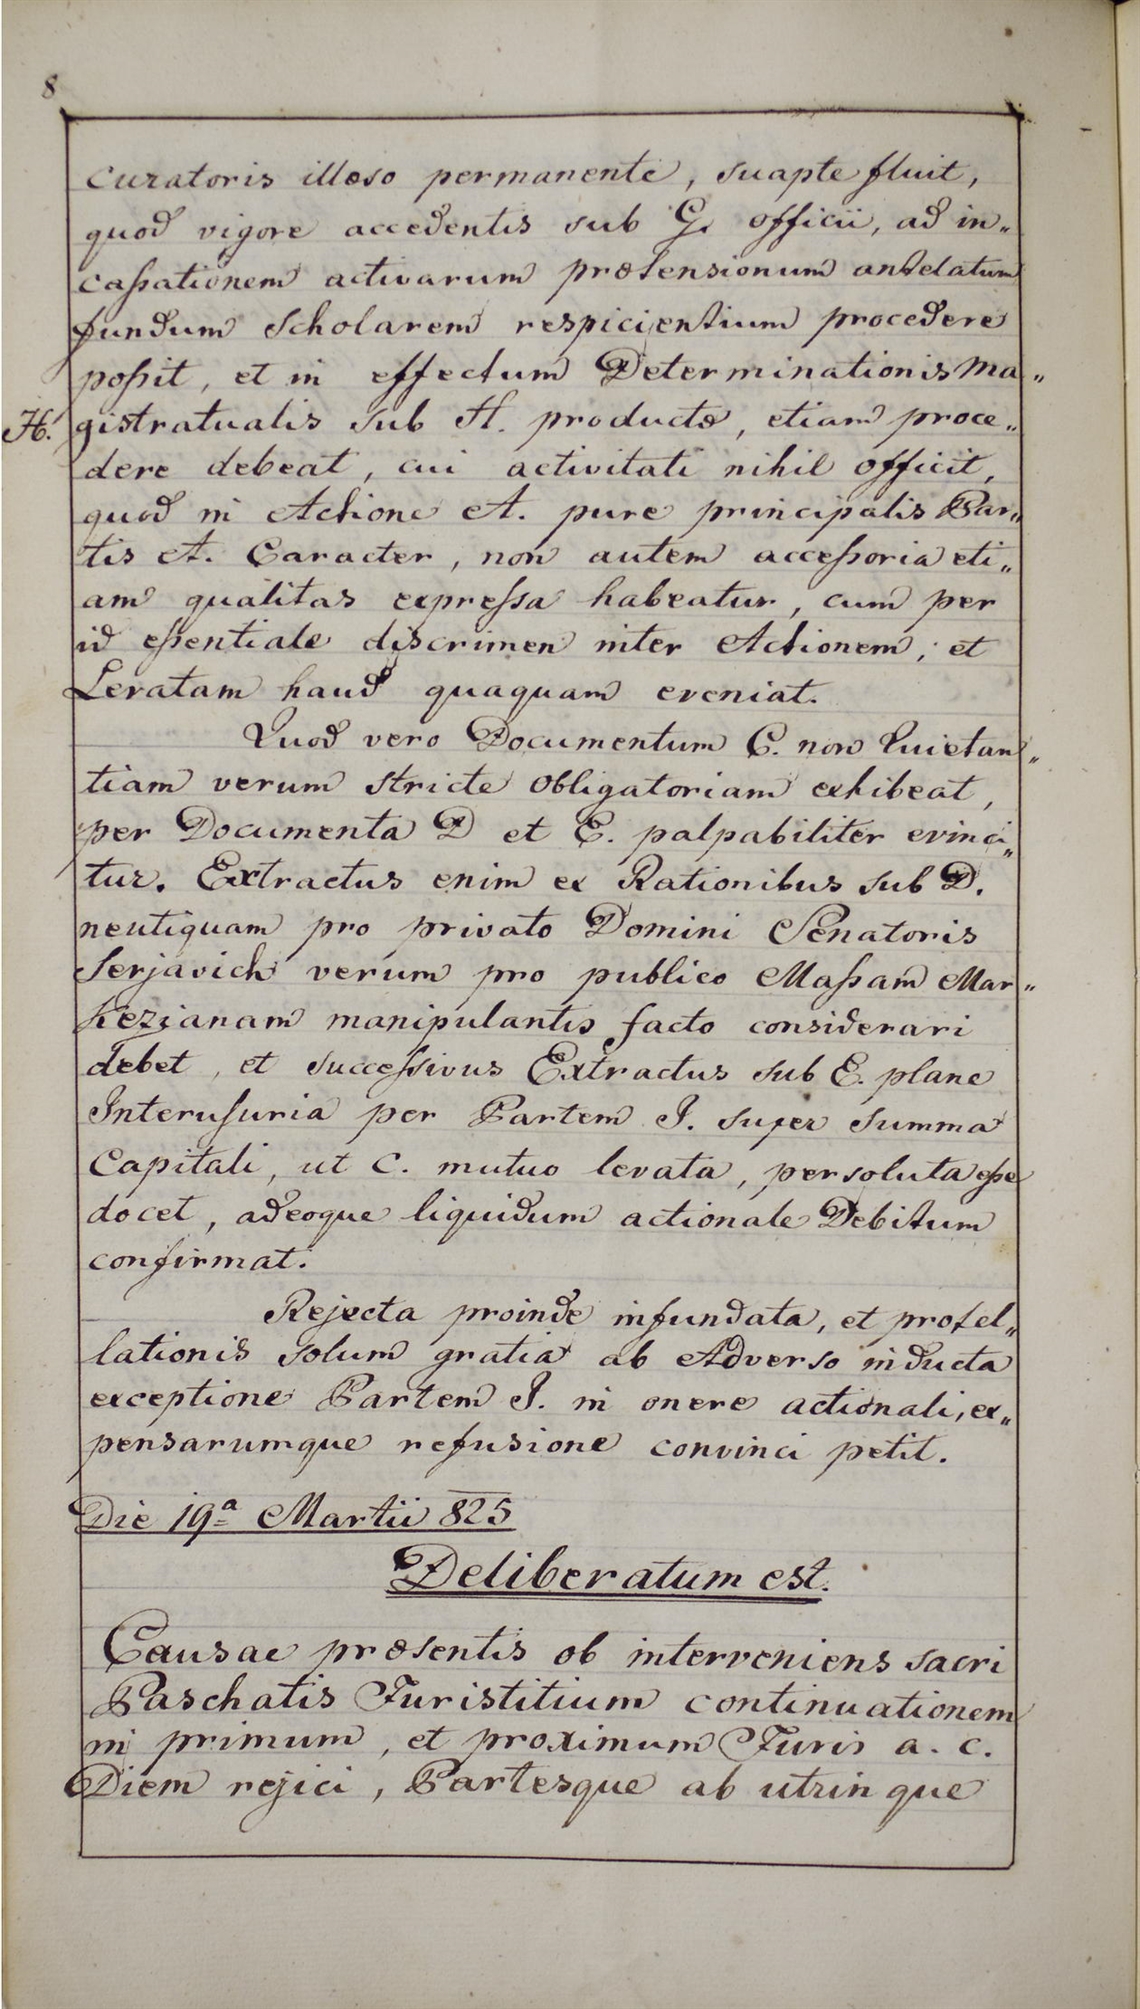 8
curatoris illæso permanente, suapte fluit,
quod vigore accedentis sub G. officii, ad in„
cassationem activarum prætensionum antelatum
fundum Scholarem respicientium procedere
possit, et in effectum Determinationis Ma„
H. gistratualis sub H. productæ, etiam proce„
dere debeat, cui activitati nihil officit,
quod in Actione A. pure principalis Par„
tis A. Caracter, non autem accessoria eti„
am qualitas expressa habeatur, cum per
id essentiale discrimen inter Actionem, et
Levatam haud quaquam eveniat.
Quod vero Documentum C. non Quietan„
tiam verum stricte obligatoriam exhibeat,
per Documenta D et E. palpabiliter evinci„
tur. Extractus enim ex Rationibus sub D.
neutiquam pro privato Domini Senatoris
Serjavich verum pro publico Massam Mar„
kezianam manipulantis facto considerari
debet, et successivus Extractus sub E. plane
Interusuria per Partem I. super Summa
Capitali, ut C. mutuo levata, persoluta esse
docet, adeoque liquidum actionale Debitum
confirmat.
Rejecta proinde infundata, et protel„
lationis solum gratia ab Adverso inducta
exceptione Partem I. in onere actionali, ex„
pensarumque refusione convinci petit.
Die 19ª Martii 825
Deliberatum est.
Causae præsentis ob interveniens sacri
Paschatis Juristitium continuationem
in primum, et proximum Juris a. c.
Diem rejici, Partesque ab utrinque